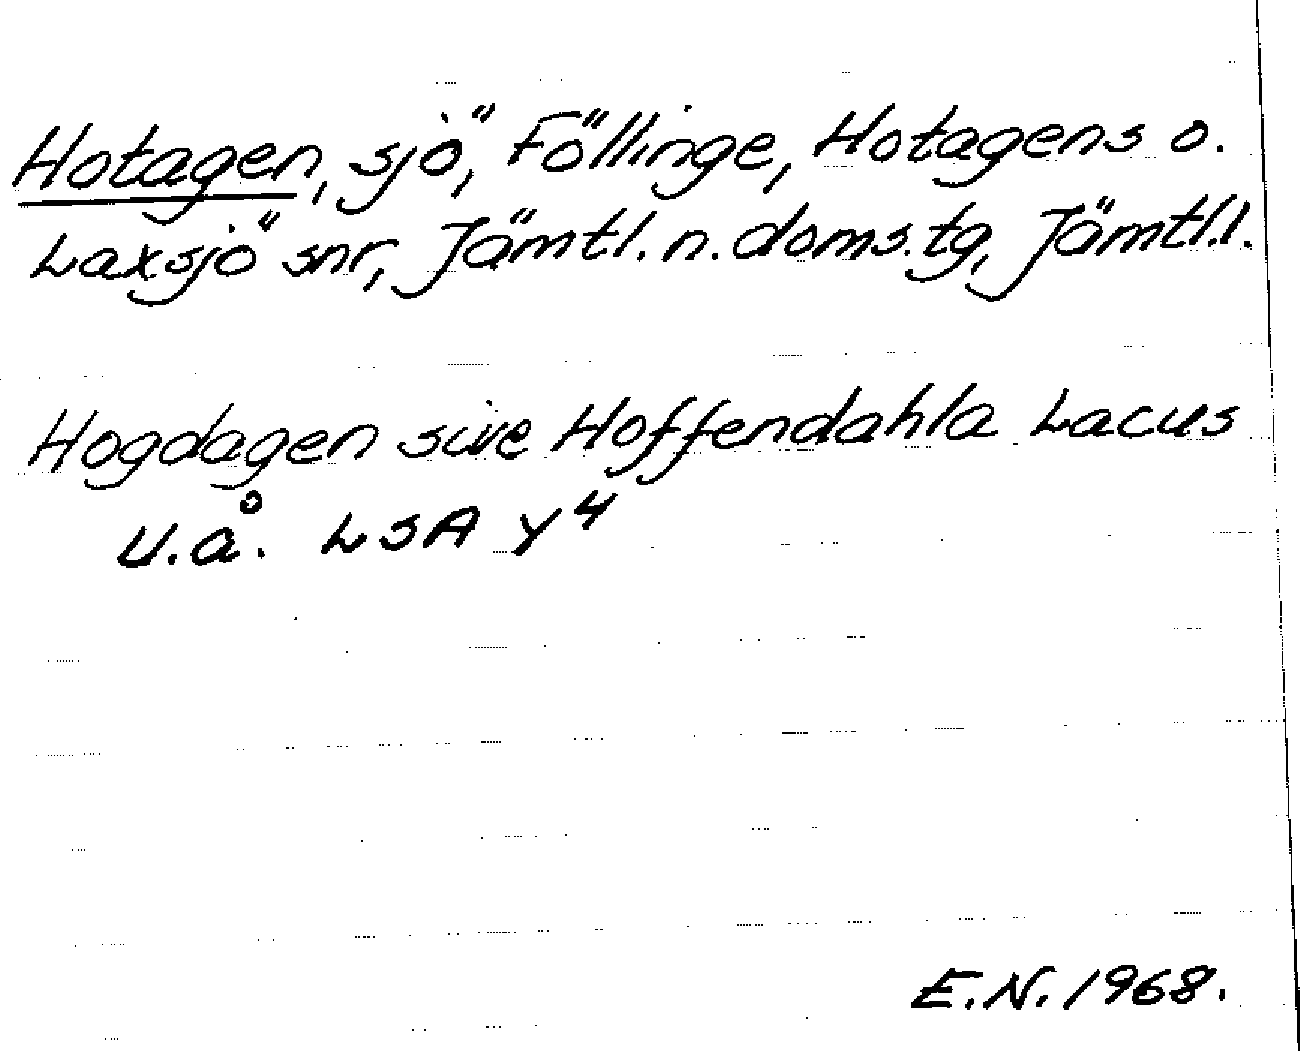 Hotagen, sjö, Föllinge, Hotagens o.
Laxsjö snr, Jämtl. n. doms.tg, Jämtl.l.
Hogdagen sive Hoffendahla Lacus
U.å. LSA Y4
E.N. 1968.